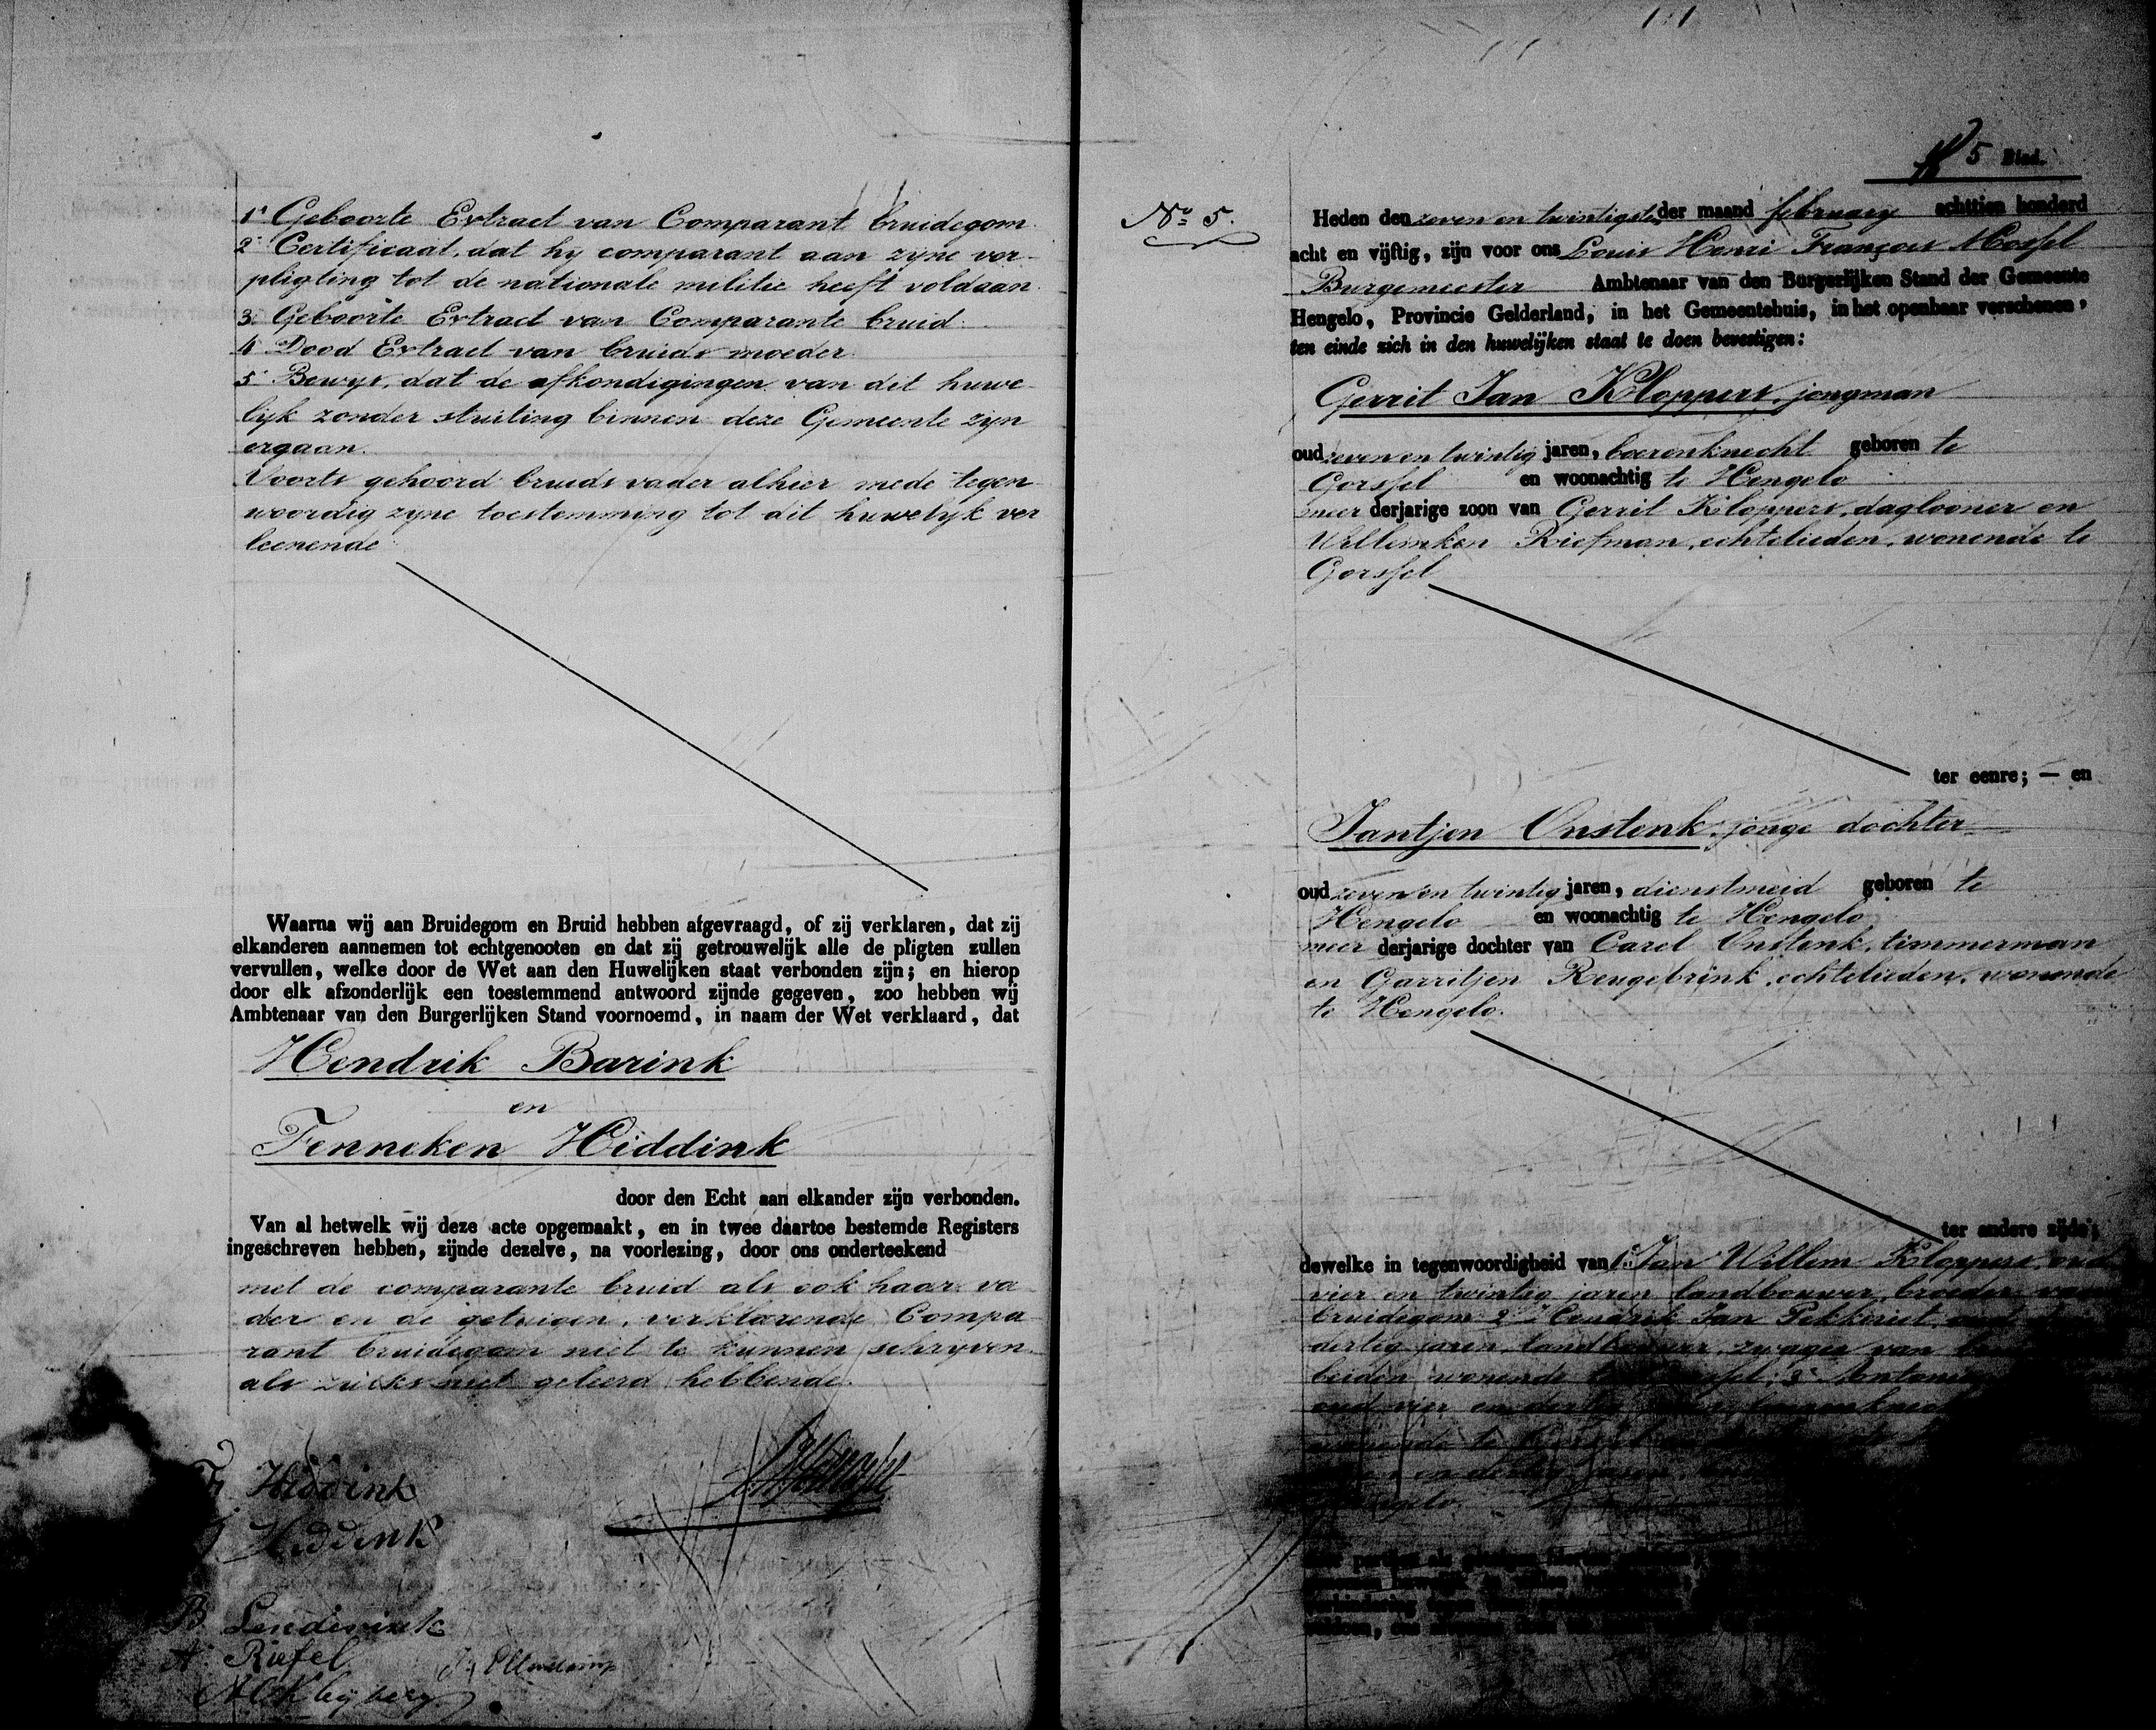 1° Geboorte Extract van Comparant bruidegom
2° Certificaat, dat hy comparant aan zyne ver-
pligting tot de nationale militie heeft voldaan.
3° Geboorte Extract van Comparante bruid.
4° Dood Extract van bruids moeder.
5° Bewys, dat de afkondigingen van dit huwe-
lyk zonder stuiting binnen deze Gemeente zyn
ergaan.
Voorts gehoord bruids vader alhier mede tegen
woordig zyne toestemming tot dit huwelyk ver
leenende
Waarna wij aan Bruidegom en Bruid hebben afgevraagd, of zij verklaren, dat zij
elkanderen aannemen tot echtgenooten en dat zij getrouwelijk alle de pligten zullen
vervullen, welke door de Wet aan den Huwelijken staat verbonden zijn; en hierop
door elk afzonderlijk een toestemmend antwoord zijnde gegeven, zoo hebben wij
Ambtenaar van den Burgerlijken Stand voornoemd, in naam der Wet verklaard, dat
Hendrik Barink
en
Fenneken Hiddink
door den Echt aan elkander zijn verbonden.
Van al hetwelk wij deze acte opgemaakt, en in twee daartoe bestemde Registers
ingeschreven hebben, zijnde dezelve, na voorlezing, door ons onderteekend
met de comparante bruid als ook haar va
der en de getuigen, verklarende Compa
rant bruidegom niet te kunnen schryven
als zulks niet geleerd hebbende.
Hiddink
Hiddink
B Lendewink
A Riefel
5 Blad.
No 5.
Heden den zeven en twintigste der maand february achttien honderd
acht en vijftig, zijn voor ons Louis Henri François Mossel
Burgemeester Ambtenaar van den Burgerlijken Stand der Gemeente
Hengelo, Provincie Gelderland, in het Gemeentehuis, in het openbaar verschenen,
ten einde zich in den huwelijken staat te doen bevestigen:
Gerrit Jan Kloppers, jongman
oud zeven en twintig jaren, boerenknecht geboren te
Gorssel en woonachtig te Hengelo
meer derjarige zoon van Gerrit Kloppers, daglooner en
Willemken Riefman, echtelieden, wonende te
Gorssel
ter eenre; — en
Jantjen Onstenk, jonge dochter
oud zeven en twintig jaren, dienstmeid geboren te
Hengelo en woonachtig te Hengelo
meer derjarige dochter van Carel Onstenk, timmerman
en Garritjen Rengebrink, echtelieden, wonende
te Hengelo.
ter andere zijde;
dewelke in tegenwoordigheid van 1° Jan Willem Kloppers, oud
vier en twintig jaren landbouwer, broeder van
bruidegom 2° Hendrik Jan Pekkeriet, oud
dertig jaren, landbouwer, zwager van
beiden wonende te Gorssel; 3°
oud vier en dertig jaren, boerenknecht
wonende te
en dertig jaren,
Hengelo.